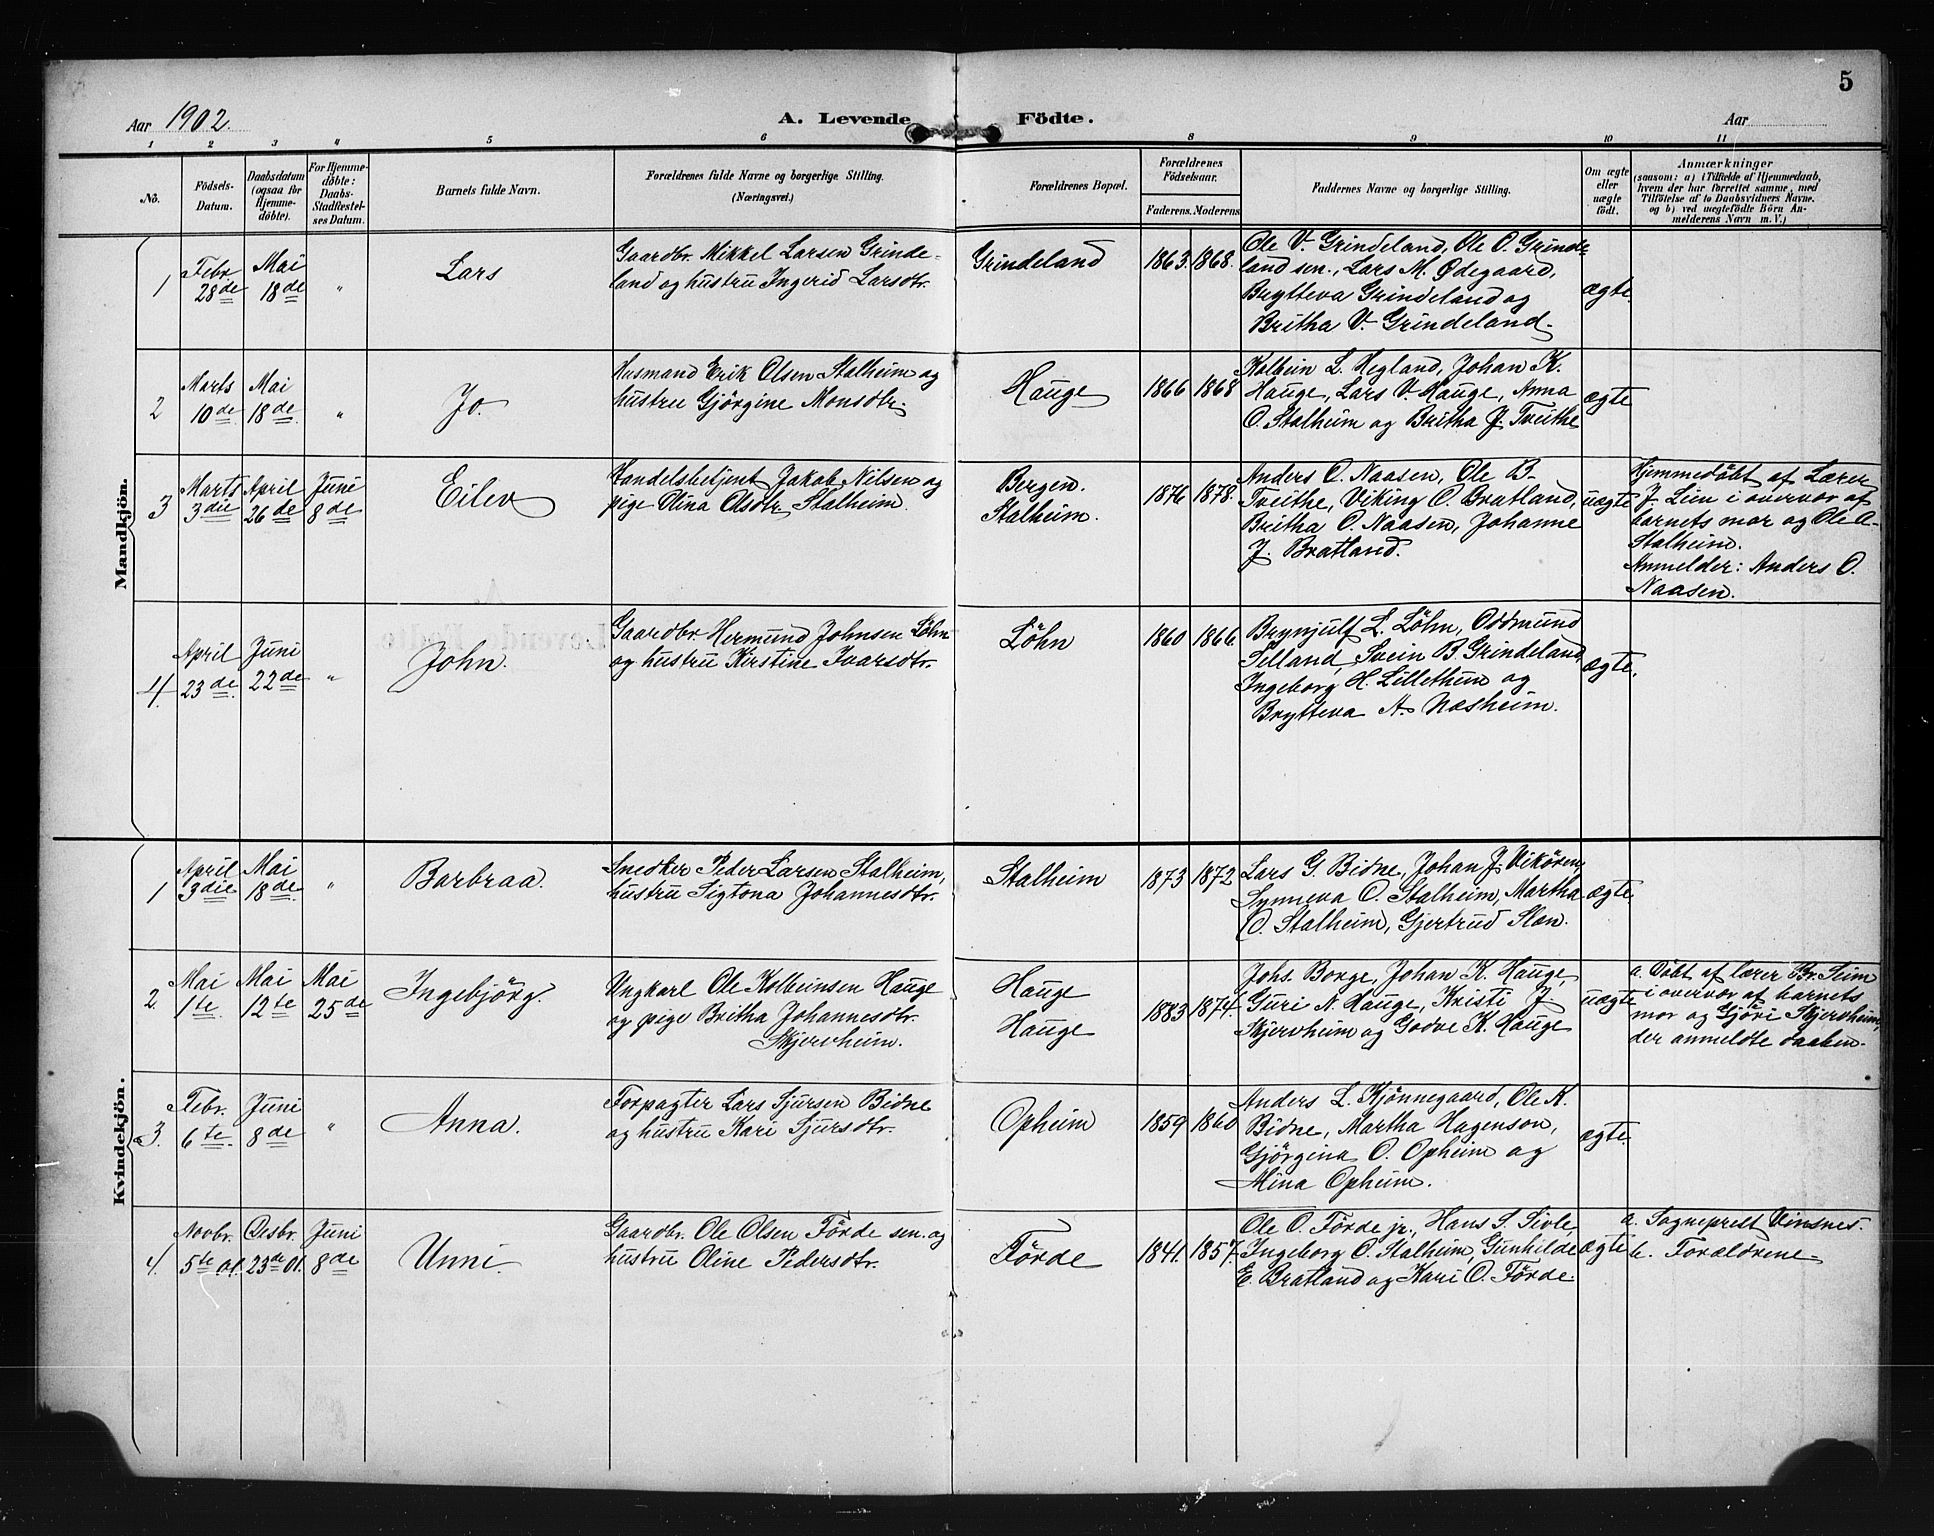 5
Aar 1902.
A. Levende Födte.
Aar
1 2 3 4 5 6 8 9 10 11
No.
Födsels-
Datum.
Daabsdatum
(ogsaa for
Hjemme-
döbte).
For Hjemme-
döbte:
Daabs-
Stadfæstel-
ses Datum.
Barnets fulde Navn.
Forældrenes fulde Navne og borgerlige Stilling.
(Næringsvei.)
Forældrenes Bopæl.
Forældrenes
Födselsaar.
Faderens. Moderens
Faddernes Navne og borgerlige Stilling.
Om ægte
eller
uægte
födt.
Anmærkninger
(saasom: a) i Tilfælde af Hjemmedaab,
hvem der har forrettet samme, med
Tilföielse af to Daabsvidners Navne.
og b) ved uægtefödte Börn An-
melderens Navn m. V.)
Mandkjön.
1
Febr.
28de
Mai
18de
"
Lars
Gaardbr. Mikkel Larsen Grinde-
land og hustru Ingerid Larsdtr.
Grindeland
1863. 1868.
Ole V. Grindeland, Ole O. Grinde-
land sen., Lars M. Ødegaard,
Brytteva Grindeland og
Britha V. Grindeland.
ægte
2
Marts
10de
Mai
18de
"
Jo.
Husmand Erik Olsen Stalheim og
hustru Gjörgine Monsdtr.
Hauge
1866 1868
Kolbein L. Hegland, Johan K.
Hauge, Lars V. Hauge, Anna
O. Stalheim og Britha J. Tveithe
ægte
3
Marts
3die
April
26de
Juni
8de
Eilev
Handelsbetjent Jakob Nilsen og
pige Olina Olsdtr. Stalheim.
Bergen.
Stalheim.
1876 1878.
Anders O. Naasen, Ole B.
Tveithe, Viking O. Bratland,
Britha O. Naasen, Johanne
J. Bratland.
uægte
Hjemmedöbt af Lærer
J. Lien i overvær af
barnets mor og Ole A.
Stalheim.
Anmelder: Anders O.
Naasen.
4.
April
23de
Juni
22de
"
John.
Gaardbr. Hermund Johnsen Löhn
og hustru Kirstine Ivarsdtr.
Löhn
1860 1866.
Brynjulf L. Löhn, Oddmund
Selland, Svein B. Grindeland,
Ingeborg H. Lillethun og
Brytteva A. Næsheim.
ægte.
Kvindekjön.
1
April
3die
Mai
18de
"
Barbraa.
Snedker Peder Larsen Stalheim,
hustru Sigtona Johannesdtr.
Stalheim
1873 1872
Lars G. Bidne, Johan J. Vikören,
Synneva O. Stalheim, Martha
O. Stalheim, Gjertrud Slæn.
ægte
2.
Mai
1te
Mai
12te
Mai
25de
Ingebjörg.
Ungkarl Ole Kolbeinsen Hauge
og pige Britha Johannesdtr.
Skjervheim.
Hauge
Hauge
1883 1874.
Johs. Borge, Johan K. Hauge,
Guri N. Hauge, Kristi J.
Skjervheim og Godve K. Hauge
uægte
a. Döbt af lærer Br. Seim
i overvær af barnets
mor og Gjöri Skjervheim,
der anmeldte daaben.
3.
Febr.
6te
Juni
8de
"
Anna.
Forpagter Lars Sjursen Bidne
og hustru Kari Sjursdtr.
Opheim
1859 1860
Anders L. Kjönnegaard, Ole K.
Bidne, Martha Hagenson,
Gjörgina O. Opheim og
Mina Opheim.
ægte.
4.
Novbr.
5te 01.
Desbr.
23de 01.
Juni
8de
Unni.
Gaardbr. Ole Olsen Förde sen. og
hustru Oline Pedersdtr.
Förde
1841. 1857.
Ole O. Förde jr., Hans S. Sivle,
Ingeborg O. Stalheim, Gunhilde
E. Bratland og Kari O. Förde.
ægte
a. Sogneprest Vinsnes.
b. Forældrene